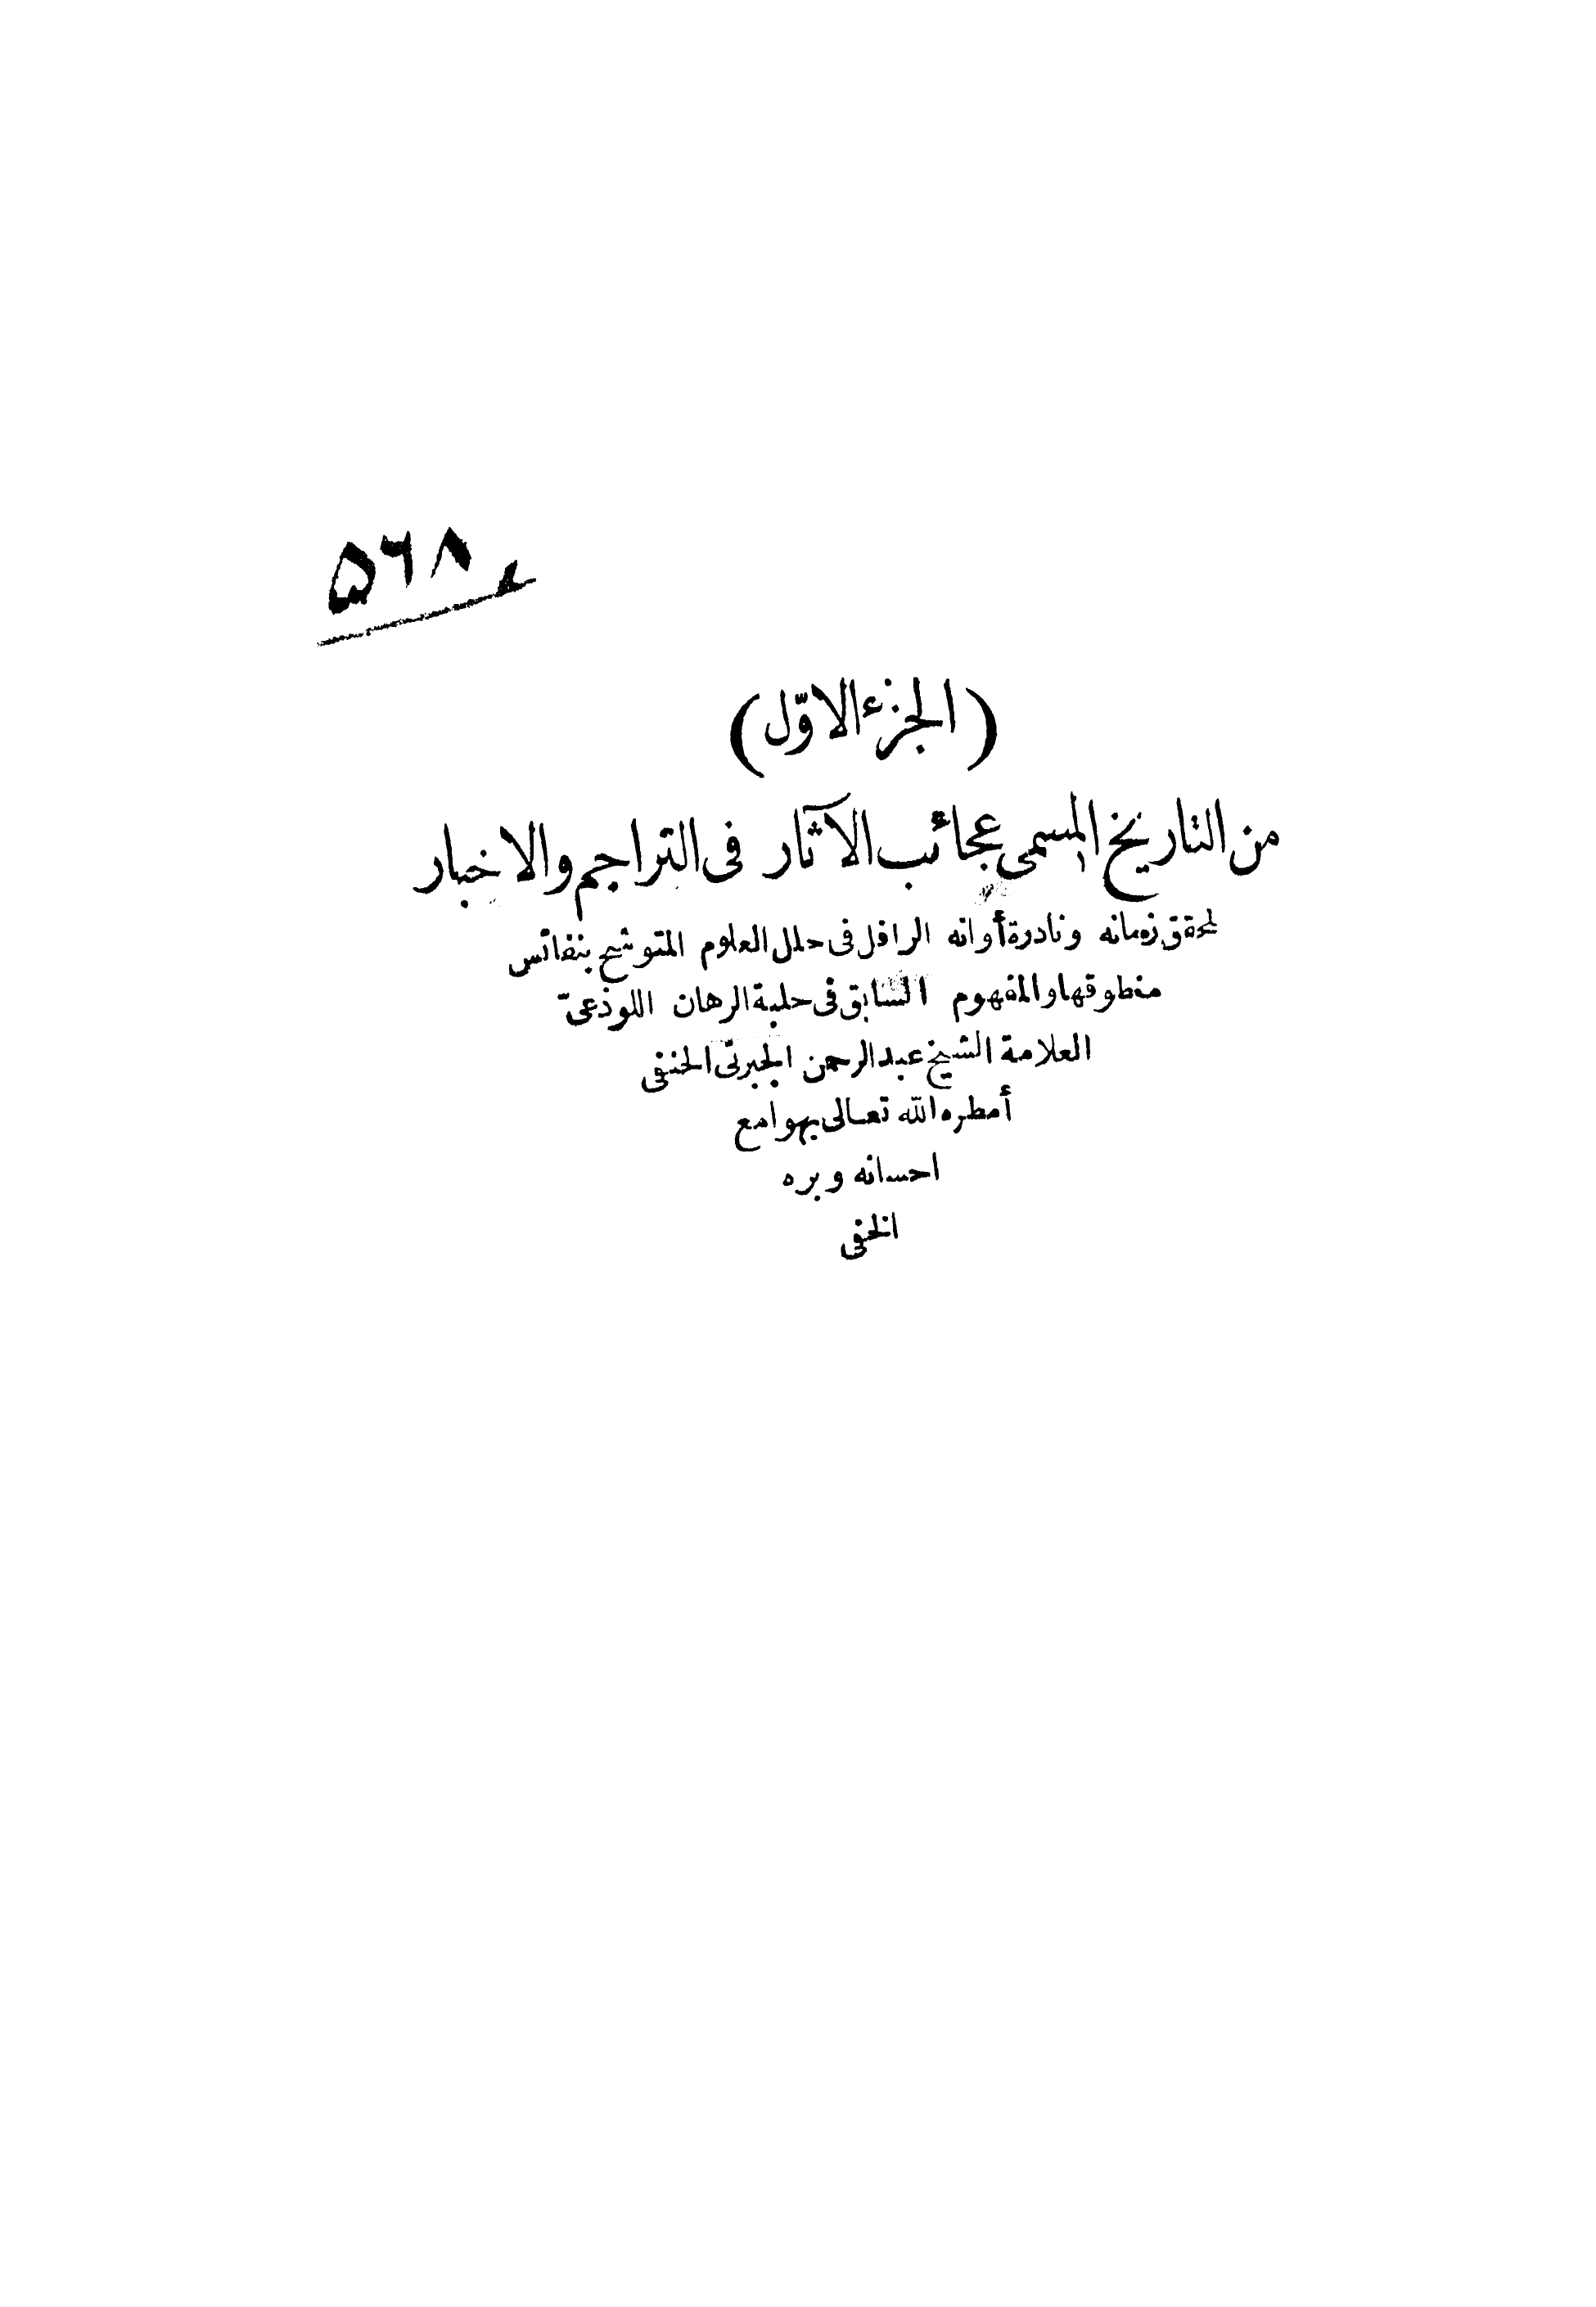 ٥٦٨
(الجزء الاوّل)
من التاريخ المسمى عجائب الآثار فى التراجم والاخبار
لمحقق زمانه ونادرة أوانه الرافل فى حلل العلوم المتوشح بنفائس
منطوقها والمفهوم السابق فى حلبة الرهان اللوذعىّ
العلامة الشيخ عبد الرحمن الجبرتى الحنفى
أمطره الله تعالى بهوامع
احسانه وبره
الخفى